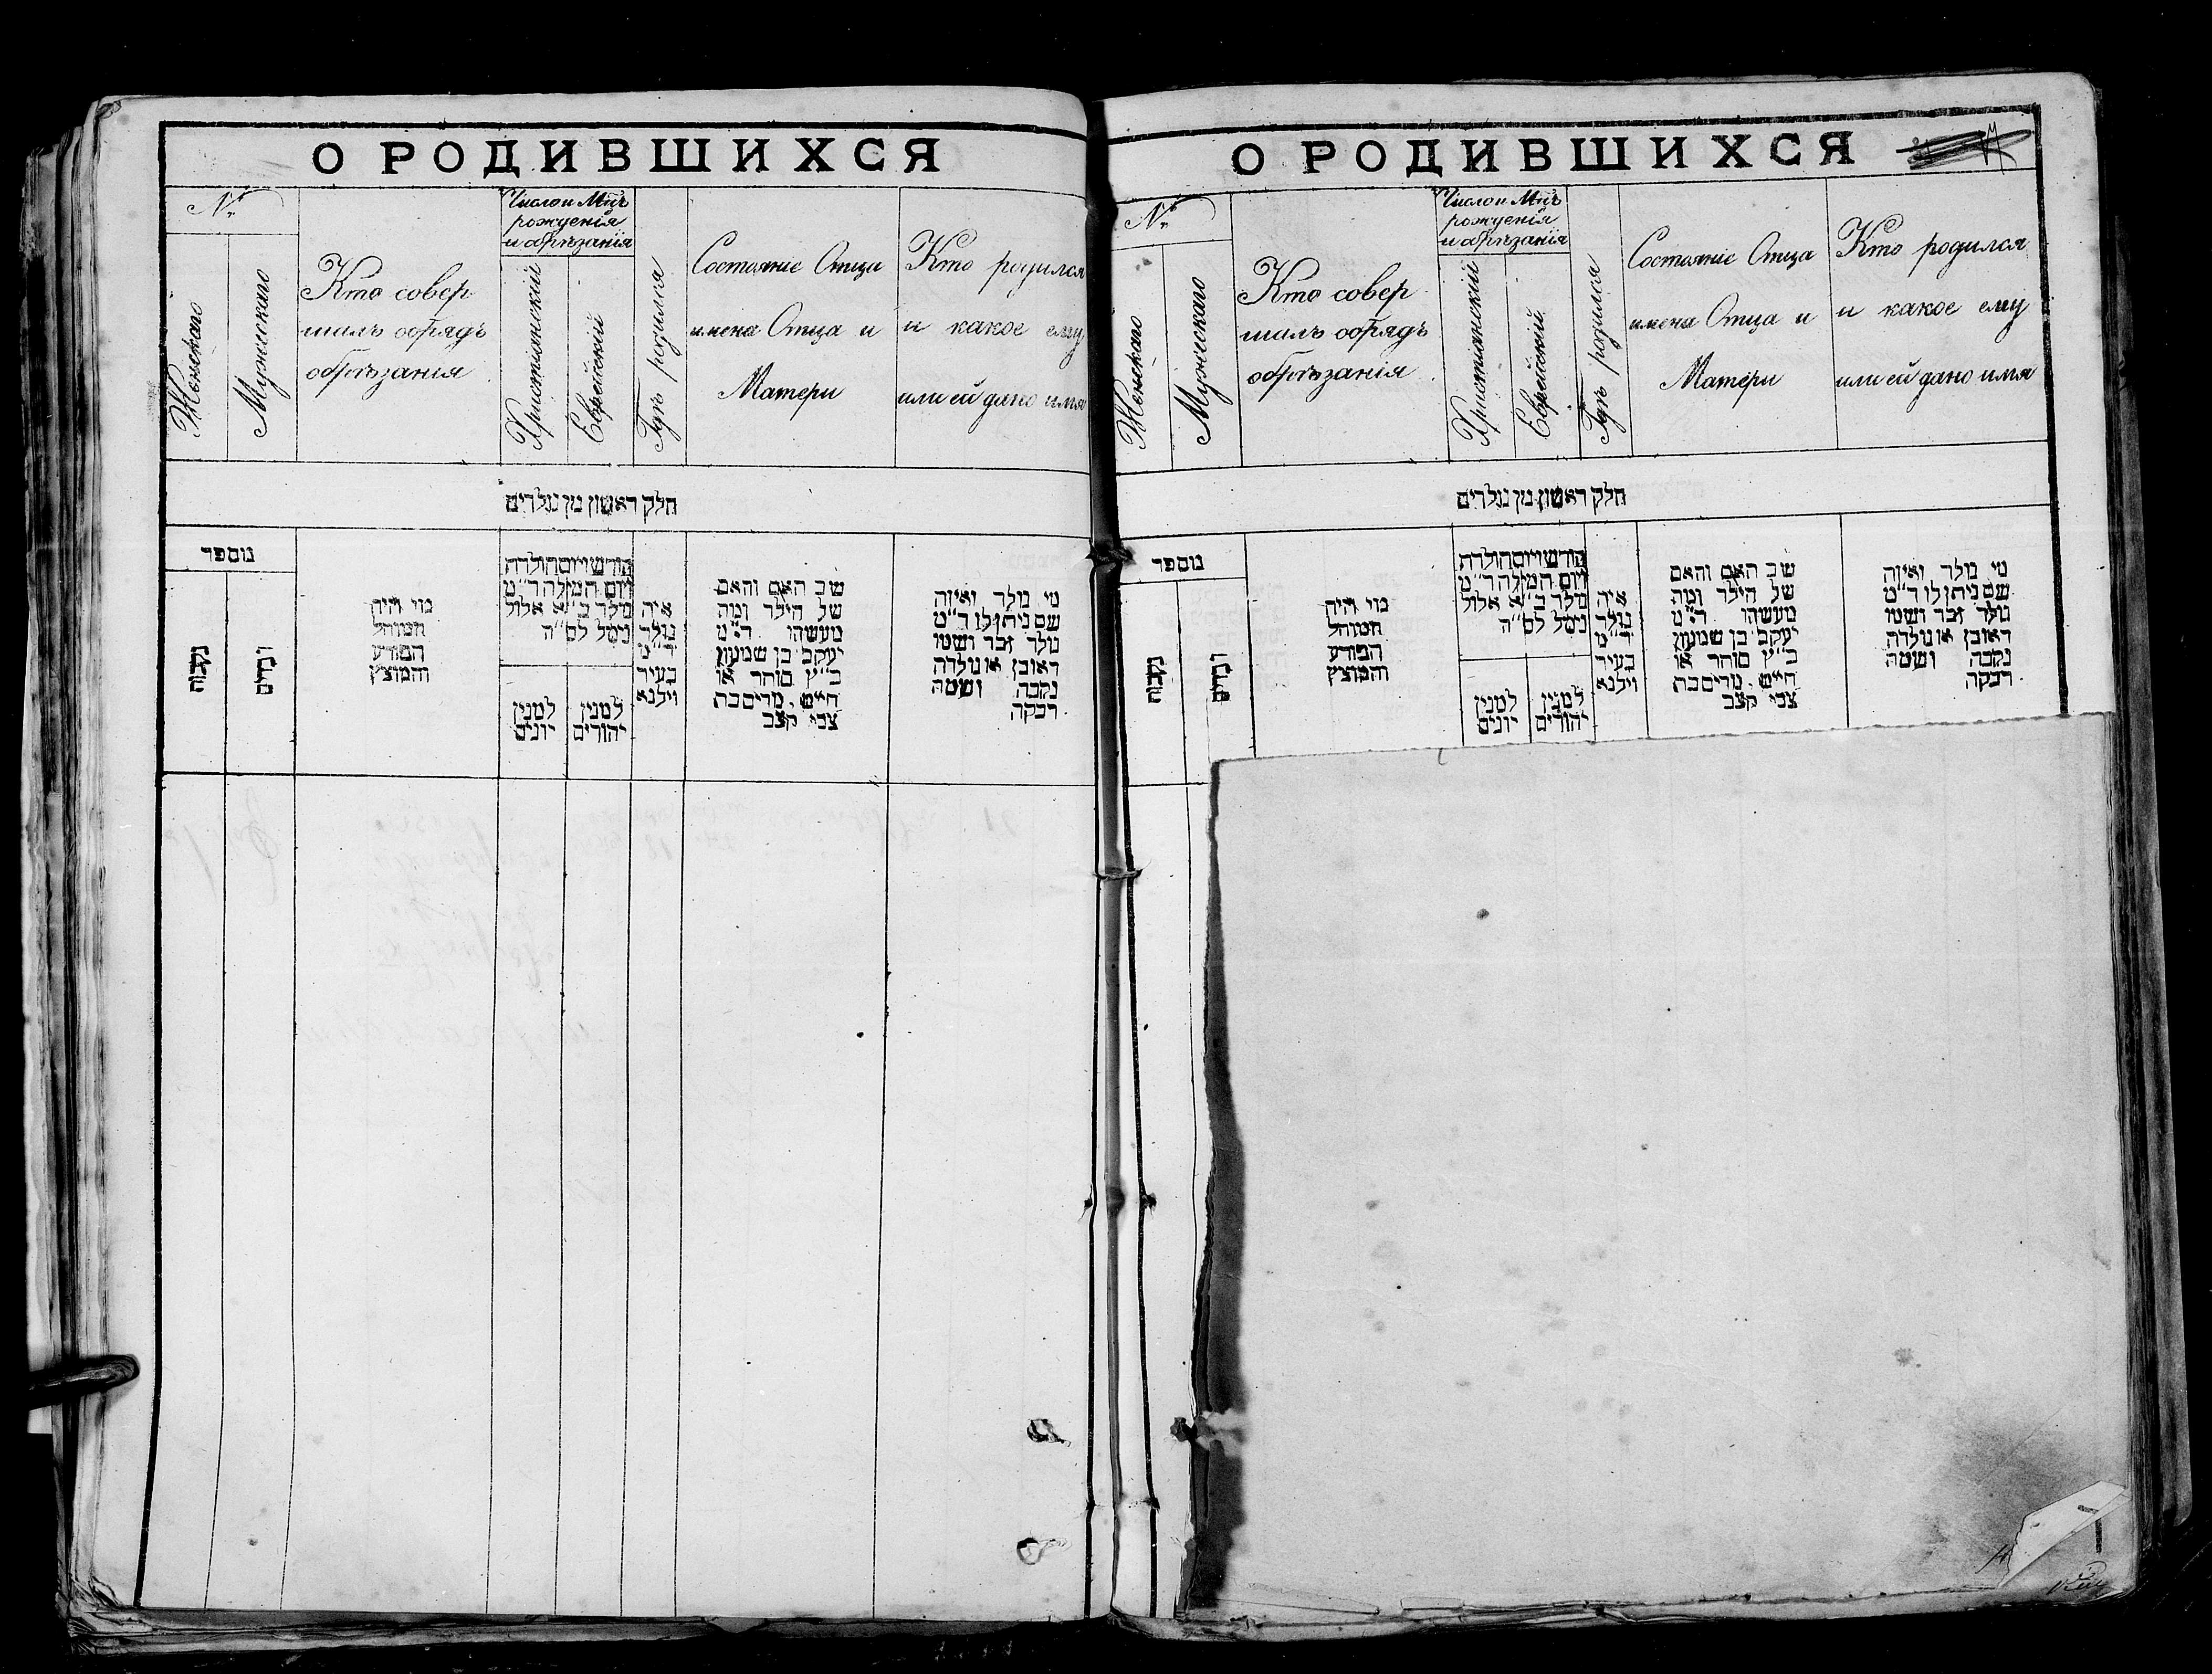 О РОДИВШИХСЯ
№
Женскаго
Мужескаго
Кто совер
шалъ обрядъ
обрѣзанія
Число и Мцъ
рожденія
и обрѣзанія
Христіанскій
Еврейскій
Гдѣ родился
Состояніе Отца
имена Отца и
Матери
Кто родился
и какое ему
или ей дано имя
חלק ראשון מן נולדים
מוספר
נקבות
זכרים
מי היה
המוהל
הפורע
והמוצץ
חודש ויום הולדת
ויום המילה ד״מ
נולד ב״א אלול
נימל לס״ה
למנין
יונים
למנין
יהודים
איה
נולד
ד״מ
בעיר
ווילנא
שב האם והאם
של הילד ומה
מעשהו ד״מ
יעקב בן שמעון
כ״ץ סוחר או
חייט, מרים בת
צבי קצב
מי נולד ואיזה
שם ניתן לו ד״מ
נולד זכר ושמו
ראובן או נולדה
נקבה ושמה
רבקה
О РОДИВШИХСЯ
№
Женскаго
Мужескаго
Кто совер
шалъ обрядъ
обрѣзанія
Число и Мцъ
рожденія
и обрѣзанія
Христіанскій
Еврейскій
Гдѣ родился
Состояніе Отца
имена Отца и
Матери
Кто родился
и какое ему
или ей дано имя
חלק ראשון מן נולדים
מוספר
נקבות
זכרים
מי היה
המוהל
הפורע
והמוצץ
חודש ויום הולדת
ויום המילה ד״מ
נולד ב״א אלול
נימל לס״ה
למנין
יונים
למנין
יהודים
איה
נולד
ד״מ
בעיר
ווילנא
שב האם והאם
של הילד ומה
מעשהו ד״מ
יעקב בן שמעון
כ״ץ סוחר או
חייט, מרים בת
צבי קצב
מי נולד ואיזה
שם ניתן לו ד״מ
נולד זכר ושמו
ראובן או נולדה
נקבה ושמה
רבקה